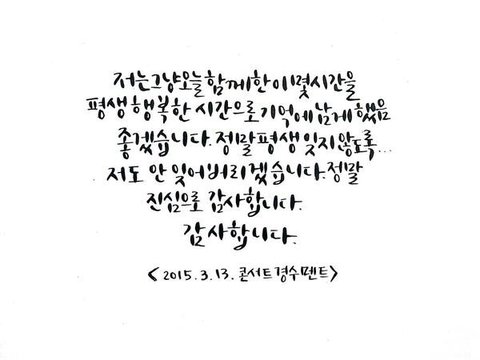 저는 그냥 오늘 함께한 이 몇 시간을
평생 행복한 시간으로 기억에 남게 했음
좋겠습니다. 정말 평생 잊지 않도록...
저도 안 잊어버리겠습니다. 정말
진심으로 감사합니다.
감사합니다.
<2015.3.13. 콘서트 경수멘트>